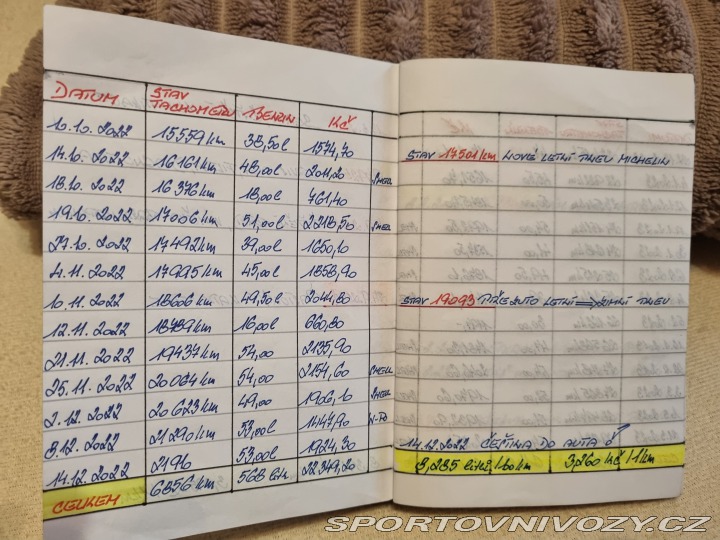 DATUM STAV TACHOMETRU BENZIN KČ
10.10.2022 15559km 38,50l 1574,70
14.10.2022 16161km 48,00l 2011,20 SHELL
18.10.2022 16376km 18,00l 761,40
19.10.2022 17006km 51,00l 2218,50 SHELL
27.10.2022 17492km 39,00l 1650,10
4.11.2022 17995km 45,00l 1858,90
10.11.2022 18606km 49,50l 2044,80
12.11.2022 18789km 16,00l 660,80
21.11.2022 19437km 54,00 2135,90
25.11.2022 20064km 54,00 2154,60 SHELL
2.12.2022 20623km 49,00 1906,10 SHELL
8.12.2022 21290km 53,00l 1447,90
14.12.2022 2196 53,00l 1924,30
CELKEM 6856km 568 litr 22349,20
STAV 17501km NOVÉ LETNÍ PNEU MICHELIN
STAV 19093 PŘEZUTO LETNÍ ⇒ ZIMNÍ PNEU
14.12.2022 ČEJTINA DO AUTA
8,285 litrů/100km 3,260 Kč/1km
SPORTOVNIVOZY.CZ